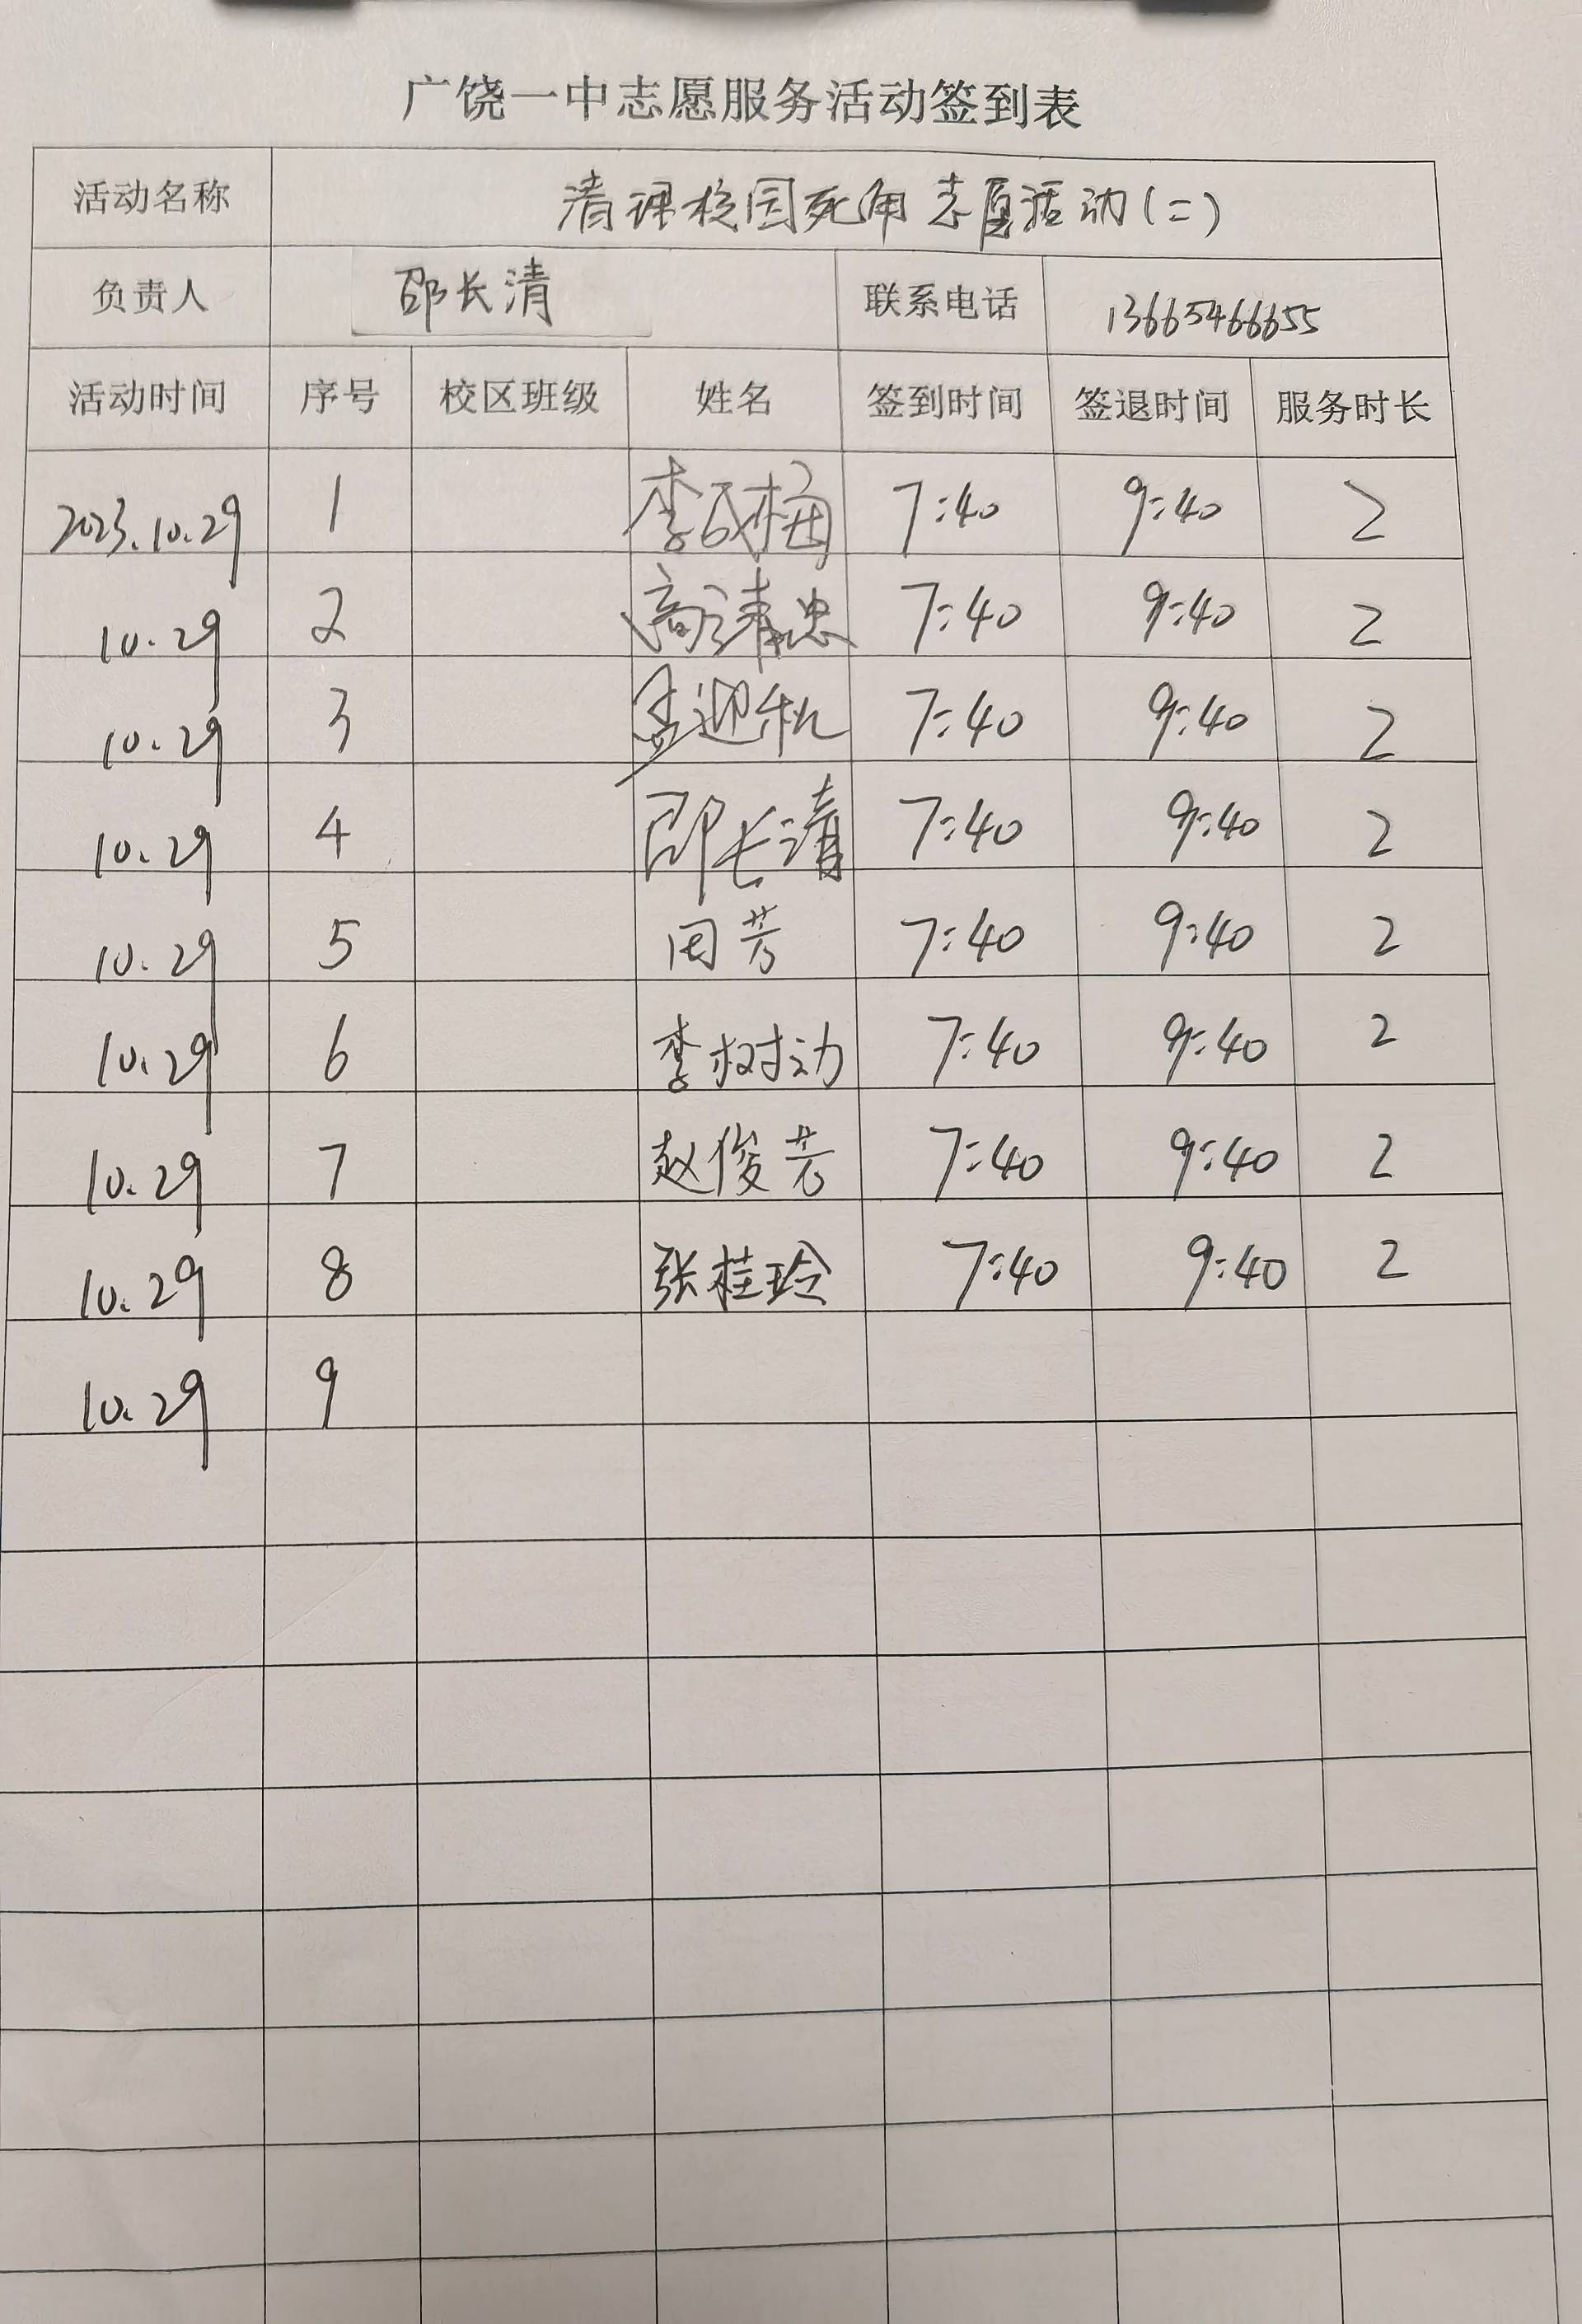 广饶一中志愿服务活动签到表
活动名称 清理校园死角志愿活动(二)
负责人 邵长清 联系电话 13665466655
活动时间 序号 校区班级 姓名 签到时间 签退时间 服务时长
2023.10.29 1 李 梅 7:40 9:40 2
10.29 2 高清忠 7:40 9:40 2
10.29 3 孟迎 7:40 9:40 2
10.29 4 邵长清 7:40 9:40 2
10.29 5 周芳 7:40 9:40 2
10.29 6 李树动 7:40 9:40 2
10.29 7 赵俊芳 7:40 9:40 2
10.29 8 张桂玲 7:40 9:40 2
10.29 9